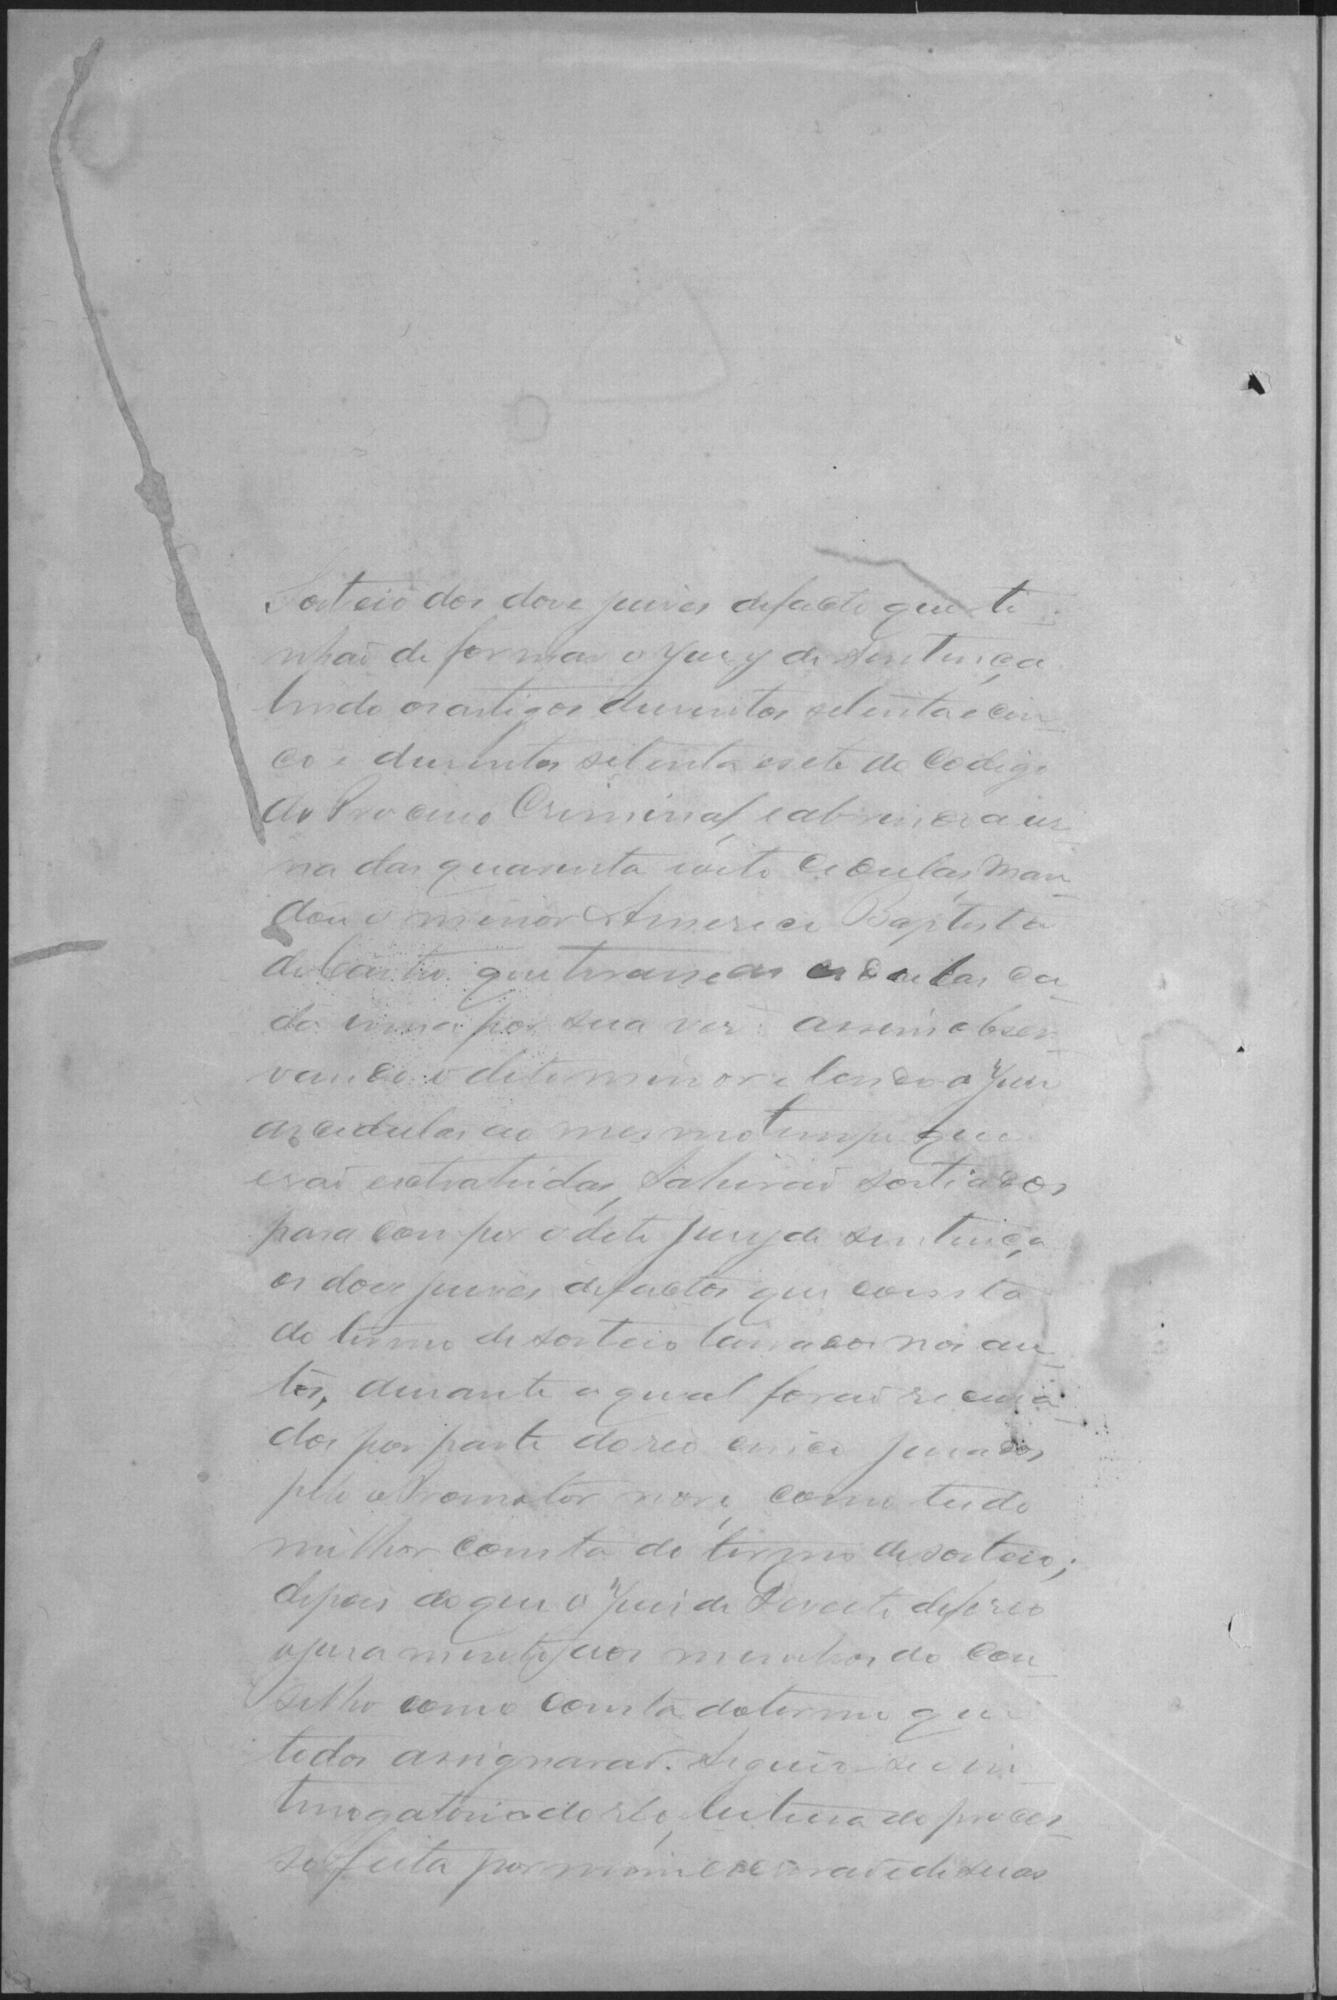 Sorteio dos doze juizes defacto que ti-
nhaõ de formar o Jury de Sentença
lendo os artigos dusentos setenta e cin-
co e dusentos setenta e sete do Codigo
do Processo Criminal, e abrindo a ur-
na das quarenta e oito cedulas, man-
dou o menor Americo Baptista
de Castro que tirasse as cedulas ca-
da uma por sua vez: assim obser-
vando o dito menor e lendo o Juiz
as cedulas ao mesmo tempo que
eraõ extrahidas, sahiraõ sortiados
para compor o dito Jury de sentença
os doze juizes defactos que consta
do termo de sorteio lavrados nos au-
tos, durante a qual foraõ recusa-
dos por parte do reo cinco jurados
pelo o Promotor nove, como tudo
milhor consta do termo de sorteio;
depois do que o Juiz de Dereito deferio
o juramento aos membros do Con-
selho como consta do termo que
todos assignaraõ. Seguio-se o in-
terrogatorio do réo, leitura do proces-
so feita por mim escrivaõ e de suas